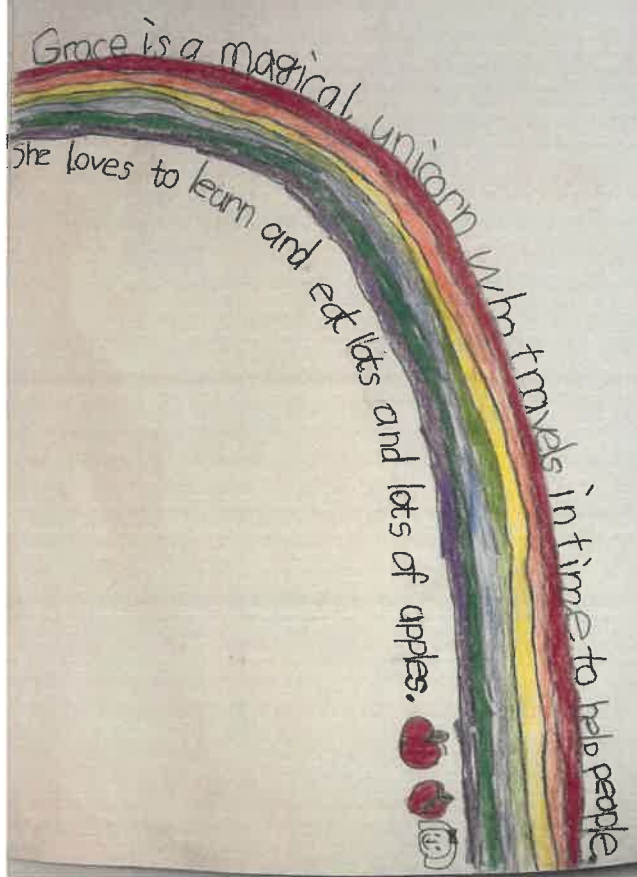 Grace is a magical unicorn who travels in time to help people.
She loves to learn and eat lots and lots of apples.